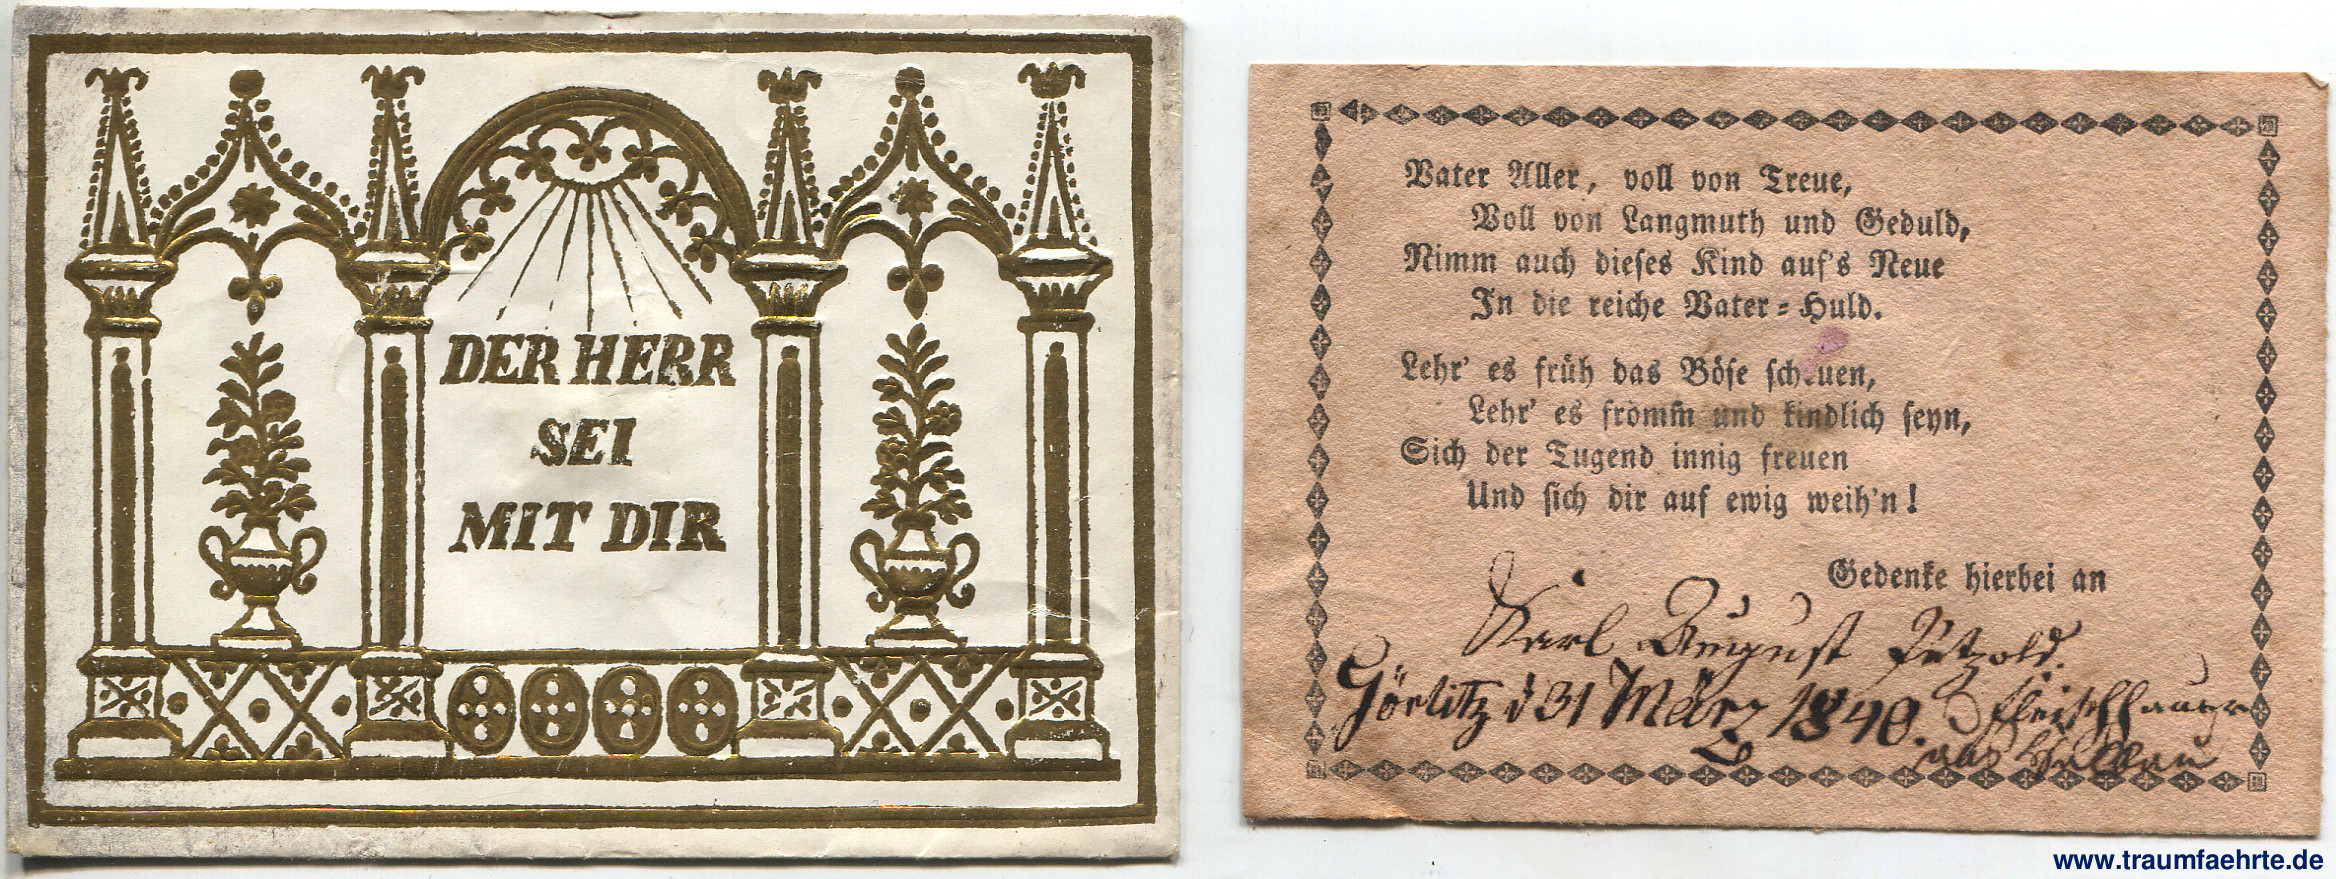 DER HERR
SEI
MIT DIR
Vater Aller, voll von Treue,
Voll von Langmuth und Geduld,
Nimm auch dieses Kind auf's Neue
In die reiche Vater-Huld.
Lehr' es früh das Böse scheuen,
Lehr' es fromm und kindlich seyn,
Sich der Tugend innig freuen
Und sich dir auf ewig weih'n!
Gedenke hierbei an
Karl August Petzold.
Görlitz d 31 März 1840. Fleischhauer
aus
www.traumfaehrte.de